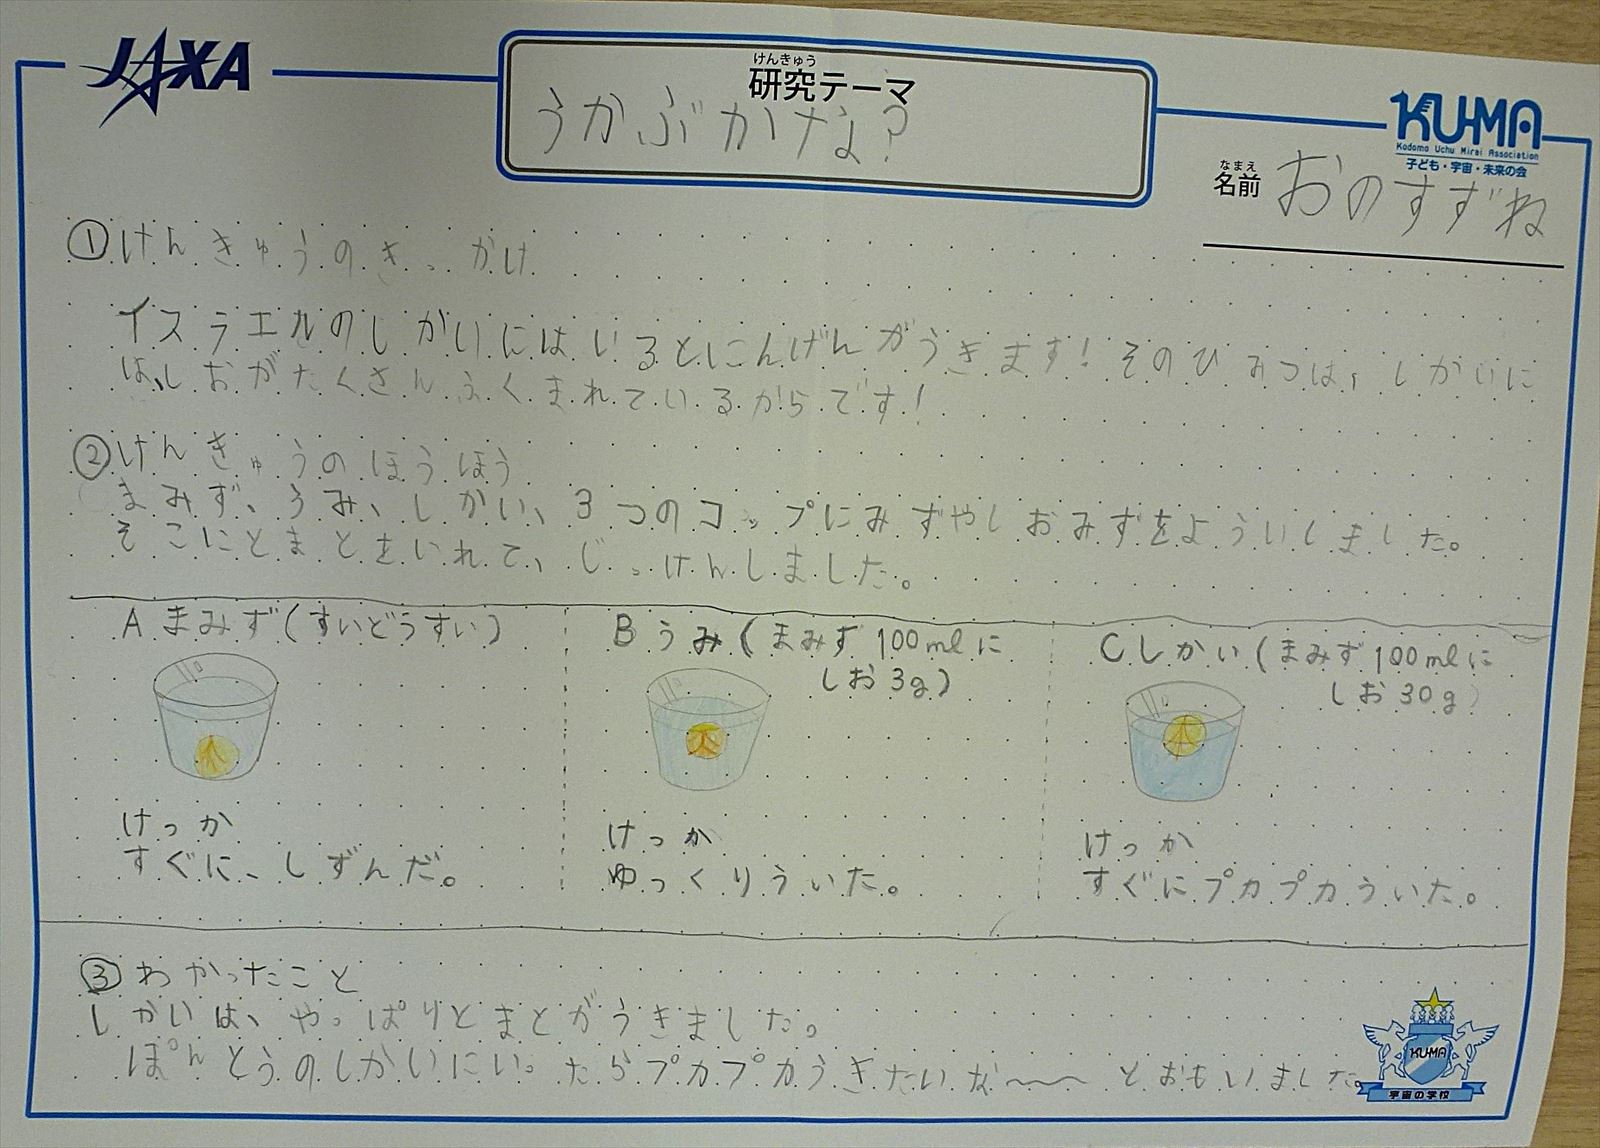 JAXA
けんきゅう
研究テーマ
うかぶかな?
KU-MA
Kodomo Uchu Mirai Association
子ども・宇宙・未来の会
なまえ
名前 おのすずね
①けんきゅうのきっかけ
イスラエルのしかいにはいるとにんげんがうきます!そのひみつは、しかいに
は、しおがたくさんふくまれているからです!
②けんきゅうのほうほう
まみず、うみ、しかい、3つのコップにみずやしおみずをよういしました。
そこにとまとをいれて、じっけんしました。
A まみず(すいどうすい)
けっか
すぐに、しずんだ。
B うみ(まみず100mlに
しお3g)
けっか
ゆっくりういた。
C しかい(まみず100mlに
しお30g)
けっか
すぐにプカプカういた。
③わかったこと
しかいは、やっぱりとまとがうきました。
ぽんとうのしかいにいったらプカプカうきたいな〜〜〜とおもいました。
KU-MA
宇宙の学校